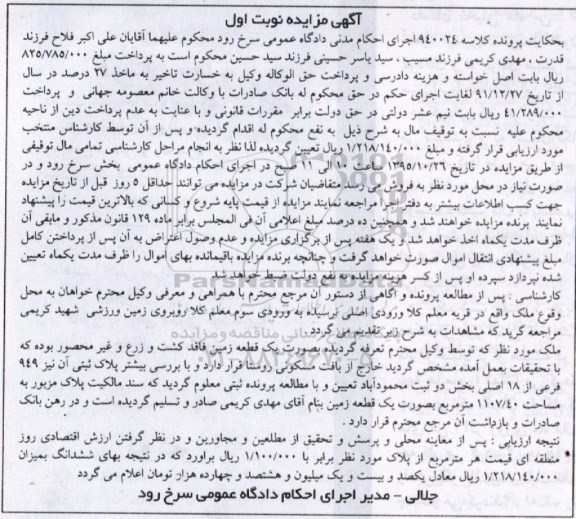 آگهی مزایده نوبت اول
بحکایت پرونده کلاسه ۹۴۰۰۲۴ اجرای احکام مدنی دادگاه عمومی سرخ رود محکوم علیهما آقایان علی اکبر فلاح فرزند
قدرت ، مهدی کریمی فرزند مسیب ، سید یاسر حسینی فرزند سید حسین محکوم است به پرداخت مبلغ ۸۲۵/۷۸۵/۰۰۰
ریال بابت اصل خواسته و هزینه دادرسی و پرداخت حق الوکاله وکیل به خسارت تاخیر به ماخذ ۲۷ درصد در سال
از تاریخ ۹۱/۱۲/۲۷ لغایت اجرای حکم در حق محکوم له بانک صادرات با وکالت خانم معصومه جهانی و پرداخت
۴۱/۲۸۹/۰۰۰ ریال بابت نیم عشر دولتی در حق دولت برابر مقررات قانونی و با عنایت به عدم پرداخت دین از ناحیه
محکوم علیه نسبت به توقیف مال به شرح ذیل به نفع محکوم له اقدام گردیده و پس از آن توسط کارشناس منتخب
مورد ارزیابی قرار گرفته و مبلغ ۱/۲۱۸/۱۴۰/۰۰۰ ریال تعیین گردیده لذا نظر به انجام مراحل کارشناسی تمامی مال توقیفی
از طریق مزایده در تاریخ ۱۳۹۵/۱۰/۲۶ ساعت ۱۰ الی ۱۱ صبح در اجرای احکام دادگاه عمومی بخش سرخ رود و در
صورت نیاز در محل مورد نظر به فروش می رسد متقاضیان شرکت در مزایده می توانند حداقل ۵ روز قبل از تاریخ مزایده
جهت کسب اطلاعات بیشتر به دفتر اجرا مراجعه نمایند مزایده از قیمت پایه شروع و کسانی که بالاترین قیمت را پیشنهاد
نمایند برنده مزایده خواهند شد و همچنین ده درصد مبلغ اعلامی آن فی المجلس برابر ماده ۱۲۹ قانون مذکور و مابقی آن
ظرف مدت یکماه اخذ خواهد شد و یک هفته پس از برگزاری مزایده و عدم وصول اعتراض به آن پس از پرداختن کامل
مبلغ پیشنهادی انتقال اموال صورت خواهد گرفت و چنانچه برنده مزایده باقیمانده بهای اموال را ظرف مدت یکماه تعیین
شده نپردازد سپرده او پس از کسر هزینه مزایده به نفع دولت ضبط خواهد شد
کارشناسی : پس از مطالعه پرونده و آگاهی از دستور آن مرجع محترم با همراهی و معرفی وکیل محترم خواهان به محل
وقوع ملک واقع در قریه معلم کلا ورودی اصلی نرسیده به ورودی سوم معلم کلا روبروی زمین ورزشی شهید کریمی
مراجعه گردید که مشاهدات به شرح زیر تقدیم می گردد
ملک مورد نظر که توسط وکیل محترم تعرفه گردید، بصورت یک قطعه زمین فاقد کشت و زرع و غیر محصور بوده که
با تحقیقات بعمل آمده مشخص گردید خارج از بافت مسکونی روستا قرار دارد و با بررسی بیشتر پلاک ثبتی آن نیز ۹۴۹
فرعی از ۱۸ اصلی بخش دو ثبت محمودآباد تعیین و با مطالعه پرونده ثبتی معلوم گردید که سند مالکیت پلاک مزبور به
مساحت ۱۱۰۷/۴۰ مترمربع بصورت یک قطعه زمین بنام آقای مهدی کریمی صادر و تسلیم گردیده است و در رهن بانک
صادرات و بازداشت آن مرجع محترم قرار دارد .
نتیجه ارزیابی : پس از معاینه محلی و پرسش و تحقیق از مطلعین و مجاورین و در نظر گرفتن ارزش اقتصادی روز
منطقه ای قیمت هر مترمربع از پلاک مورد نظر برابر با ۱/۱۰۰/۰۰۰ ریال براورد که در نتیجه بهای ششدانگ بمیزان
۱/۲۱۸/۱۴۰/۰۰۰ ریال معادل یکصد و بیست و یک میلیون و هشتصد و چهارده هزار تومان اعلام می گردد
جلالی - مدیر اجرای احکام دادگاه عمومی سرخ رود